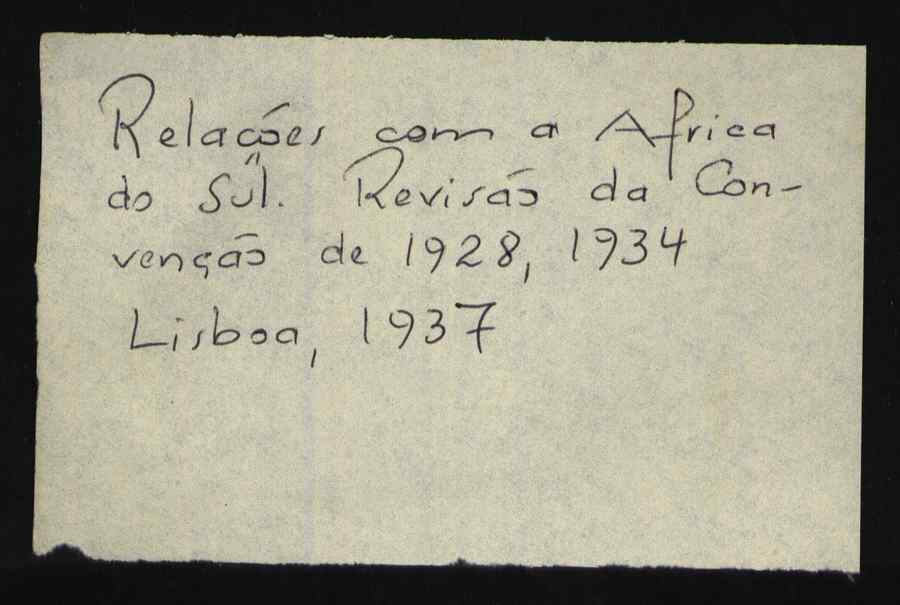 Relações com a Africa
do Sul. Revisão da Con-
venção de 1928, 1934
Lisboa, 1937